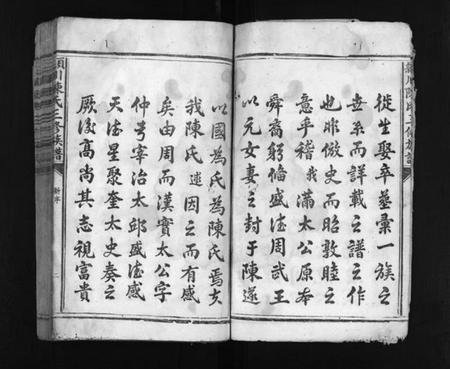 從生娶卒葬彙一族之
世系而詳載之譜之作
也非倣史而昭敦睦之
意乎稽我滿太公原本
舜裔躬脩盛德周武王
以元女妻之封于陳遂
以國為氏為陳氏焉攴
我陳氏遞因之而有感
矣由周而漢實太公字
仲弓宰治太邱盛德感
天德星聚奎太史奏之
厥後高尚其志視富貴
潁川陳氏三修族譜
新序
二